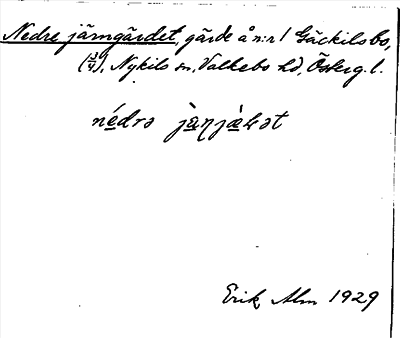 Nedre järngärdet, gärde å n:r 1 Gäckilsbo,
(3/4), Nykils sn, Valkebo hd, Österg. l.
Erik Alm 1929